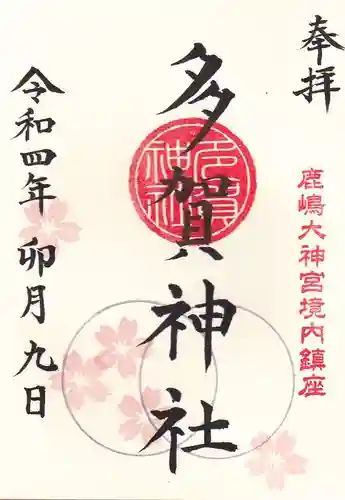 奉拝
鹿嶋大神宮境内鎮座
多賀神社
多賀神社
令和四年 卯月 九日